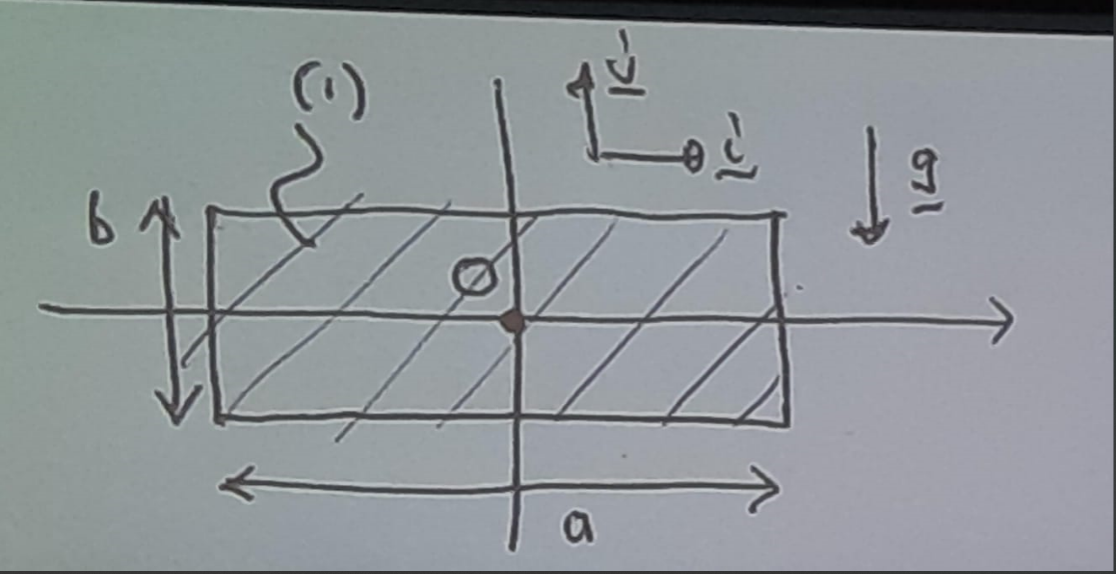 (1)
j
i
g
b
O
a